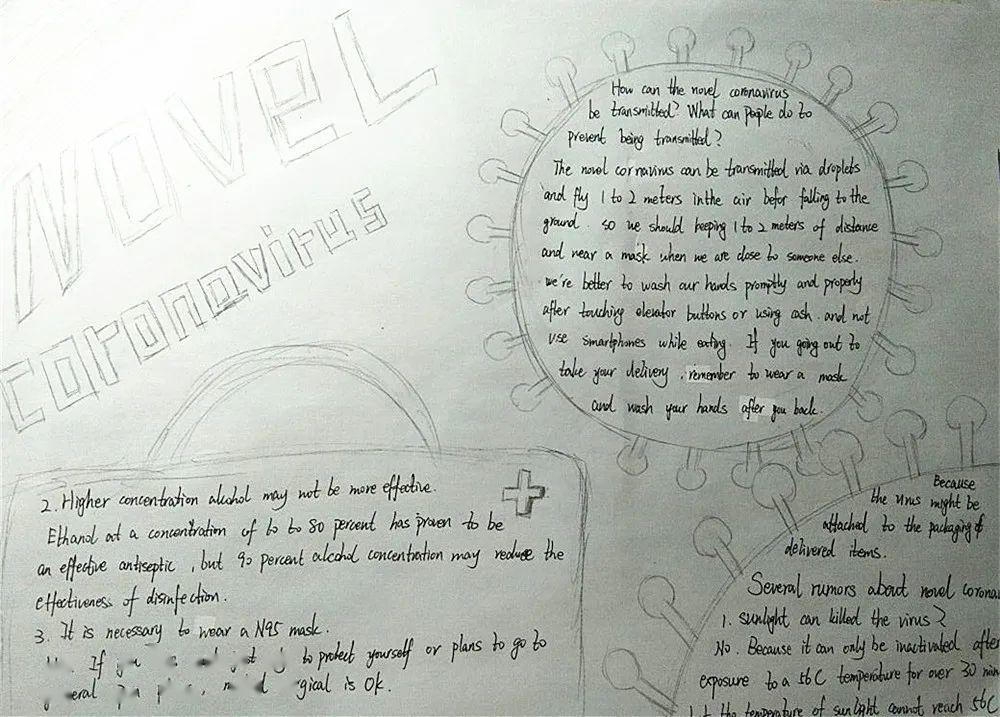 NOVEL
coronavirus
How can the novel coronavirus
be transmitted? What can people do to
prevent being transmitted?
The novel cornavirus can be transmitted via droplets
and fly 1 to 2 meters in the air befor falling to the
ground. so we should keeping 1 to 2 meters of distance
and wear a mask when we are close to someone else.
we're better to wash our hands promptly and properly
after touching elevator buttons or using cash. and not
use smartphones while eating. If you going out to
take your delivery, remember to wear a mask
and wash your hands after you back.
Because
the virus might be
attached to the packaging of
delivered items.
Several rumors about novel corona
1. sunlight can killed the virus?
No. Because it can only be inactivated after
exposure to a 56C temperature for over 30 min
the temperature of sunlight cannot reach 56C
2. Higher concentration alcohol may not be more effective.
Ethanol at a concentration of to 80 percent has proven to be
an effective antiseptic, but 90 percent alcohol concentration may reduce the
effectiveness of disinfection.
3. It is necessary to wear a N95 mask.
If to protect yourself or plans to go to
is Ok.